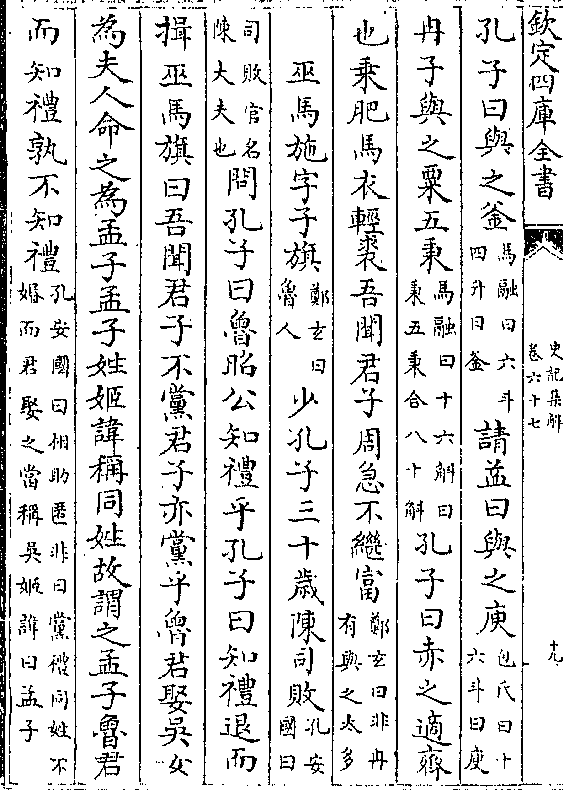 欽定四庫全書
史記集解
卷六十七
十九
孔子曰與之釜馬融曰六斗四升曰釜請益曰與之庾包氏曰十六斗曰庾
冉子與之粟五秉馬融曰十六斛曰秉五秉合八十斛孔子曰赤之適齊
也乘肥馬衣輕裘吾聞君子周急不繼富鄭玄曰非冉有與之太多
巫馬施字子旗鄭玄曰魯人少孔子三十歲陳司敗孔安國曰
司敗官名陳大夫也問孔子曰魯昭公知禮乎孔子曰知禮退而
揖巫馬旗曰吾聞君子不黨君子亦黨乎魯君娶吳女
為夫人命之為孟子孟子姓姬諱稱同姓故謂之孟子魯君
而知禮孰不知禮孔安國曰相助匿非曰黨禮同姓不婚而君娶之當稱吳姬諱曰孟子